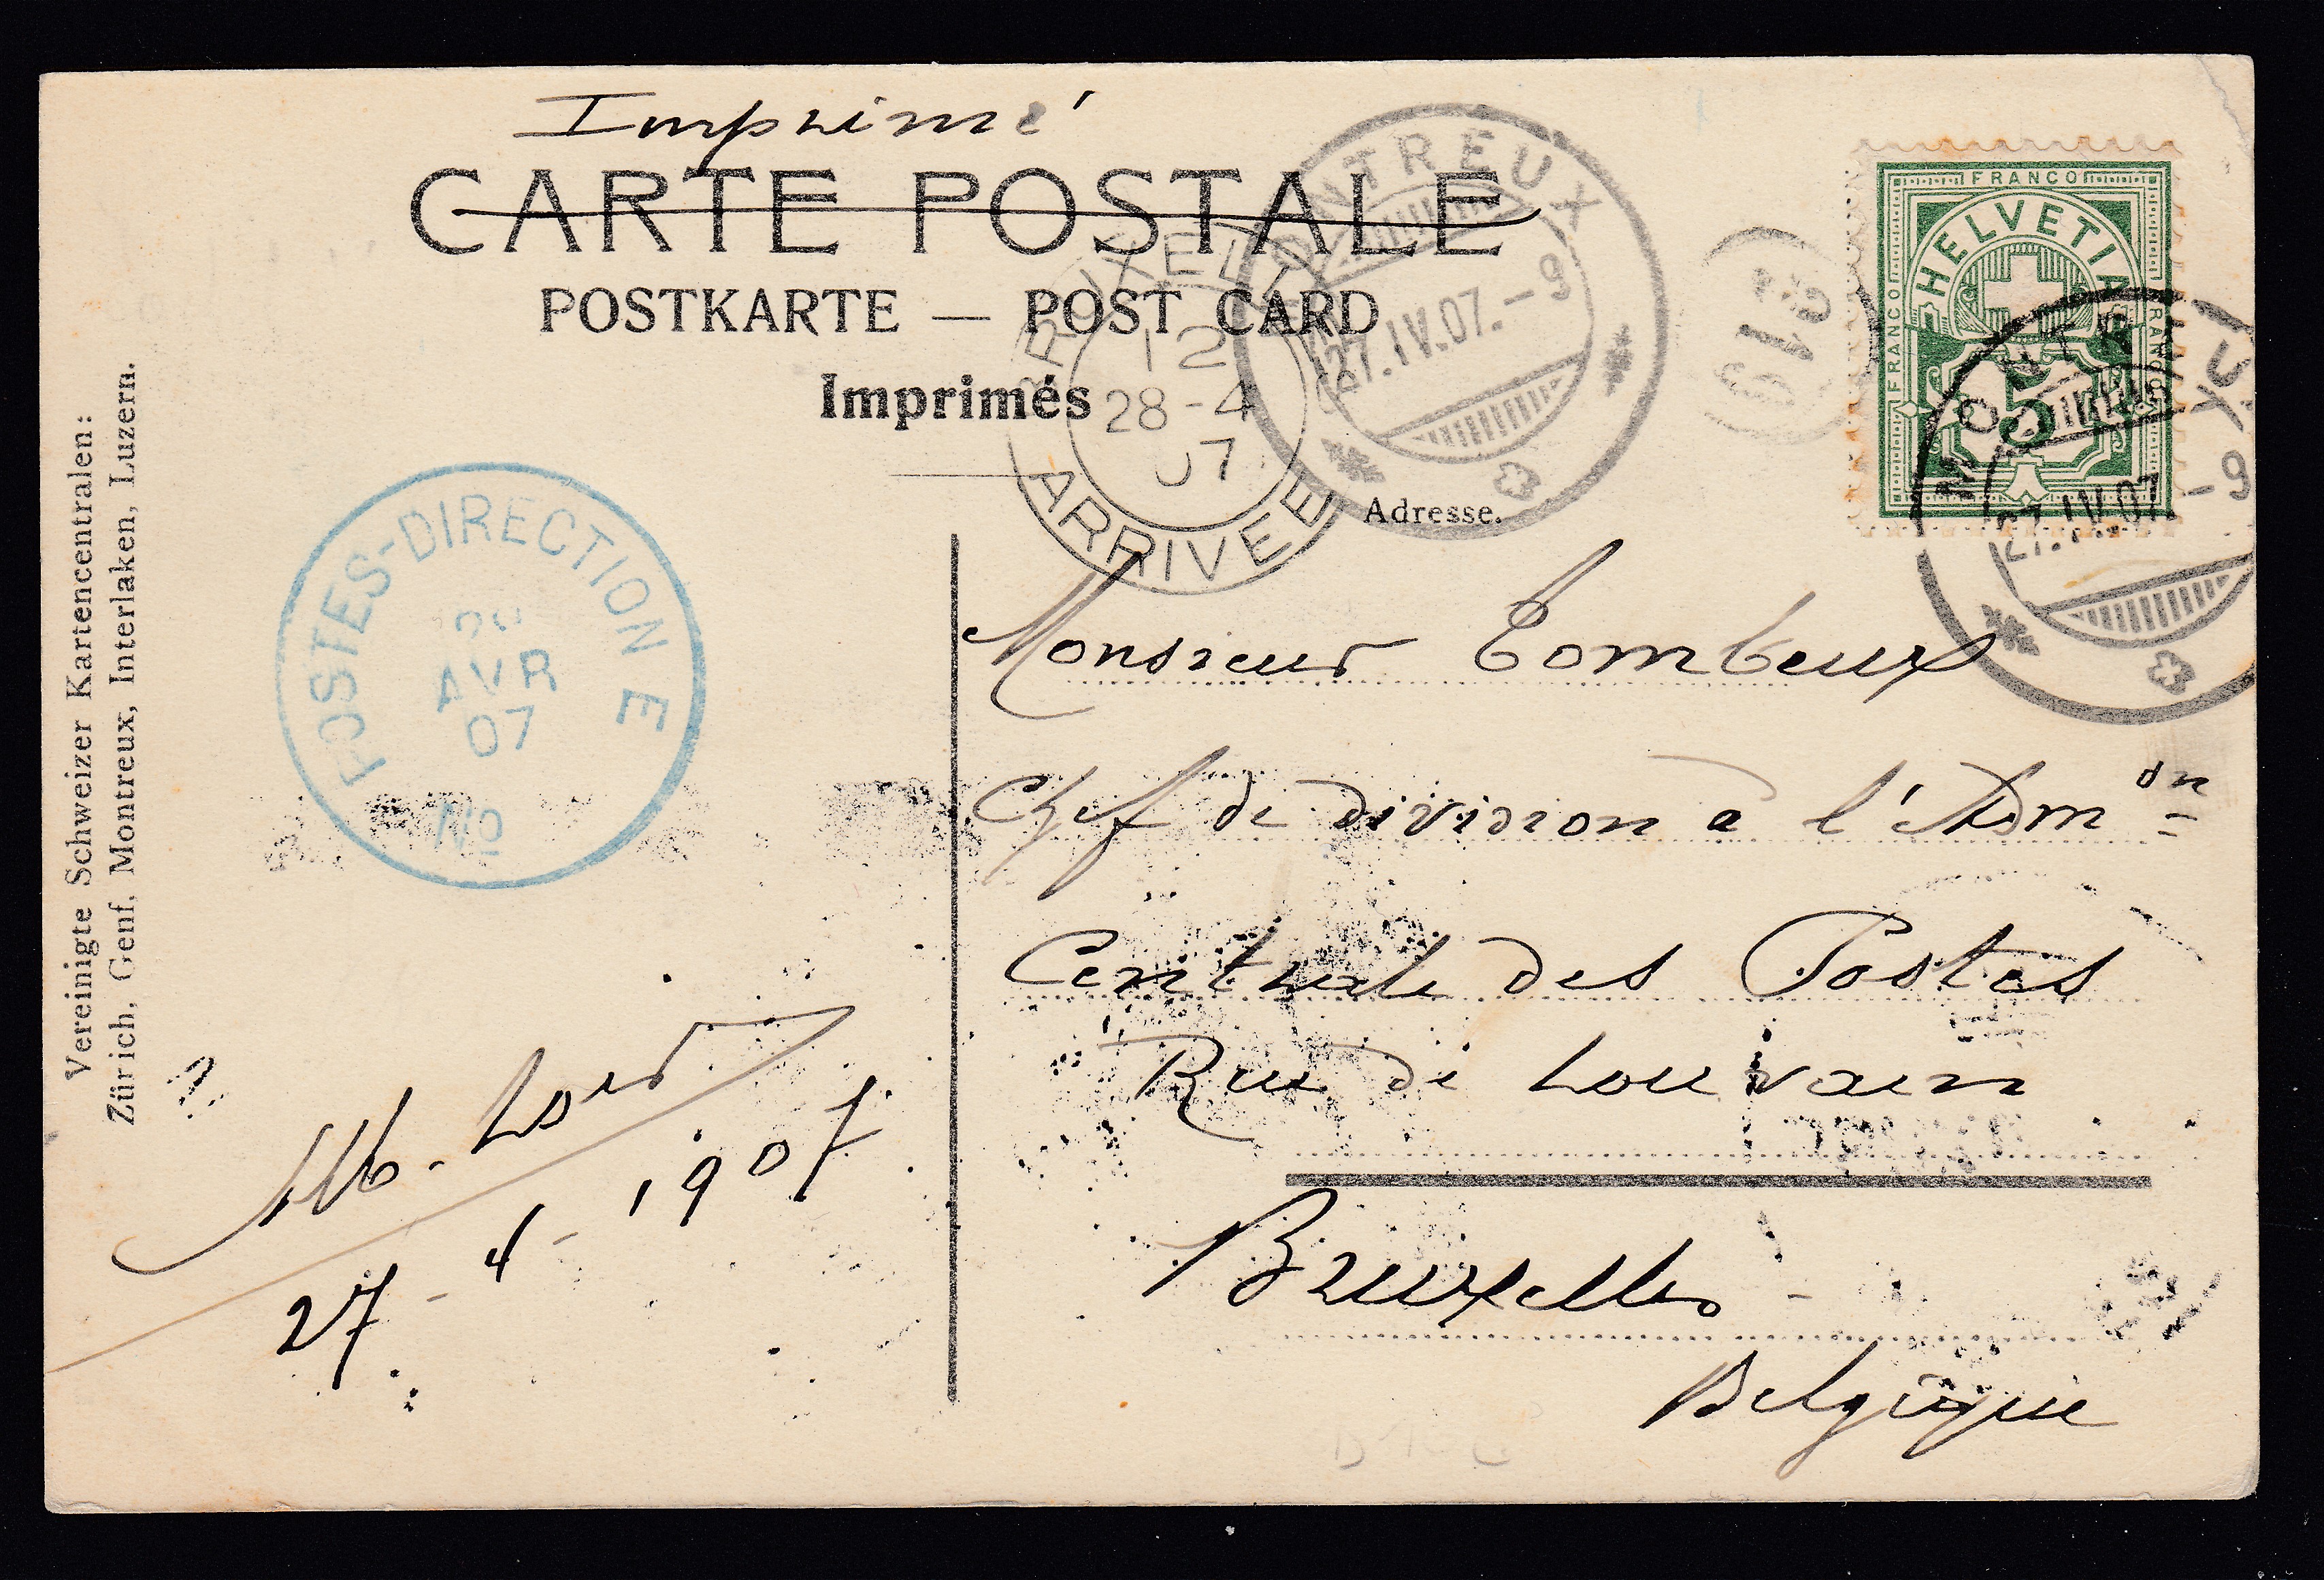 Imprimé
CARTE POSTALE
POSTKARTE — POST CARD
Imprimés
Adresse.
BRUXELLES
12
28-4
07
ARRIVEE
MONTREUX
27.IV.07.-9
619
FRANCO
HELVETIA
FRANCO
FRANCO
5
MONTREUX
27.IV.07 -9
POSTES-DIRECTION E
AVR
07
No
Monsieur Tombeux
Chef de division a l'Adm on
Centrale des Postes
Rue de Louvain
Bruxelles -
Belgique
27-4-1907
Vereinigte Schweizer Kartencentralen:
Zürich, Genf, Montreux, Interlaken, Luzern.